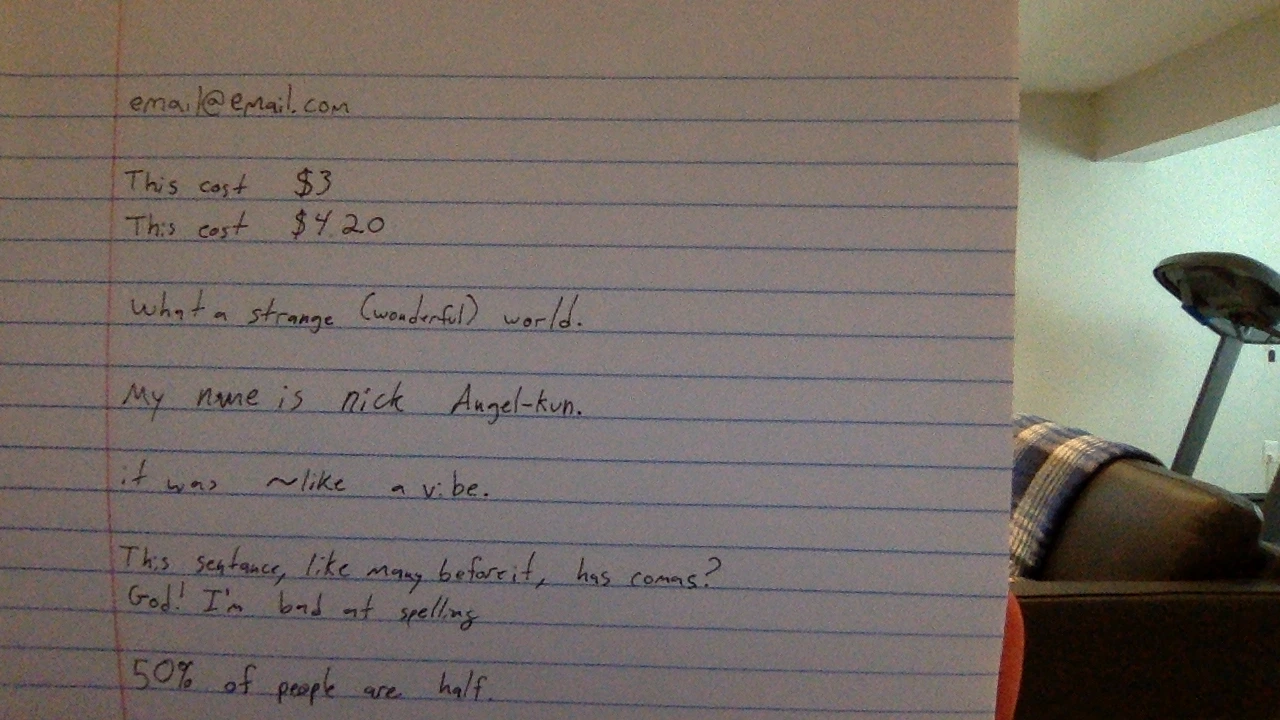 email@email.com
This cost $3
This cost $4.20
What a strange (wonderful) world.
My name is nick Angel-kun.
it was ~like a vibe.
This sentance, like many before it, has comas?
God! I'm bad at spelling
50% of people are half.